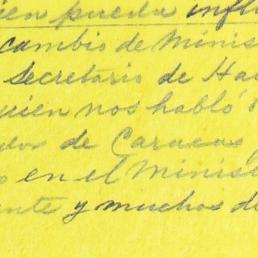 ien pueda influ
cambio de Minis
secretario de Ha
quien nos habló
dos de Caracas
en el Minist
ente y muchos de